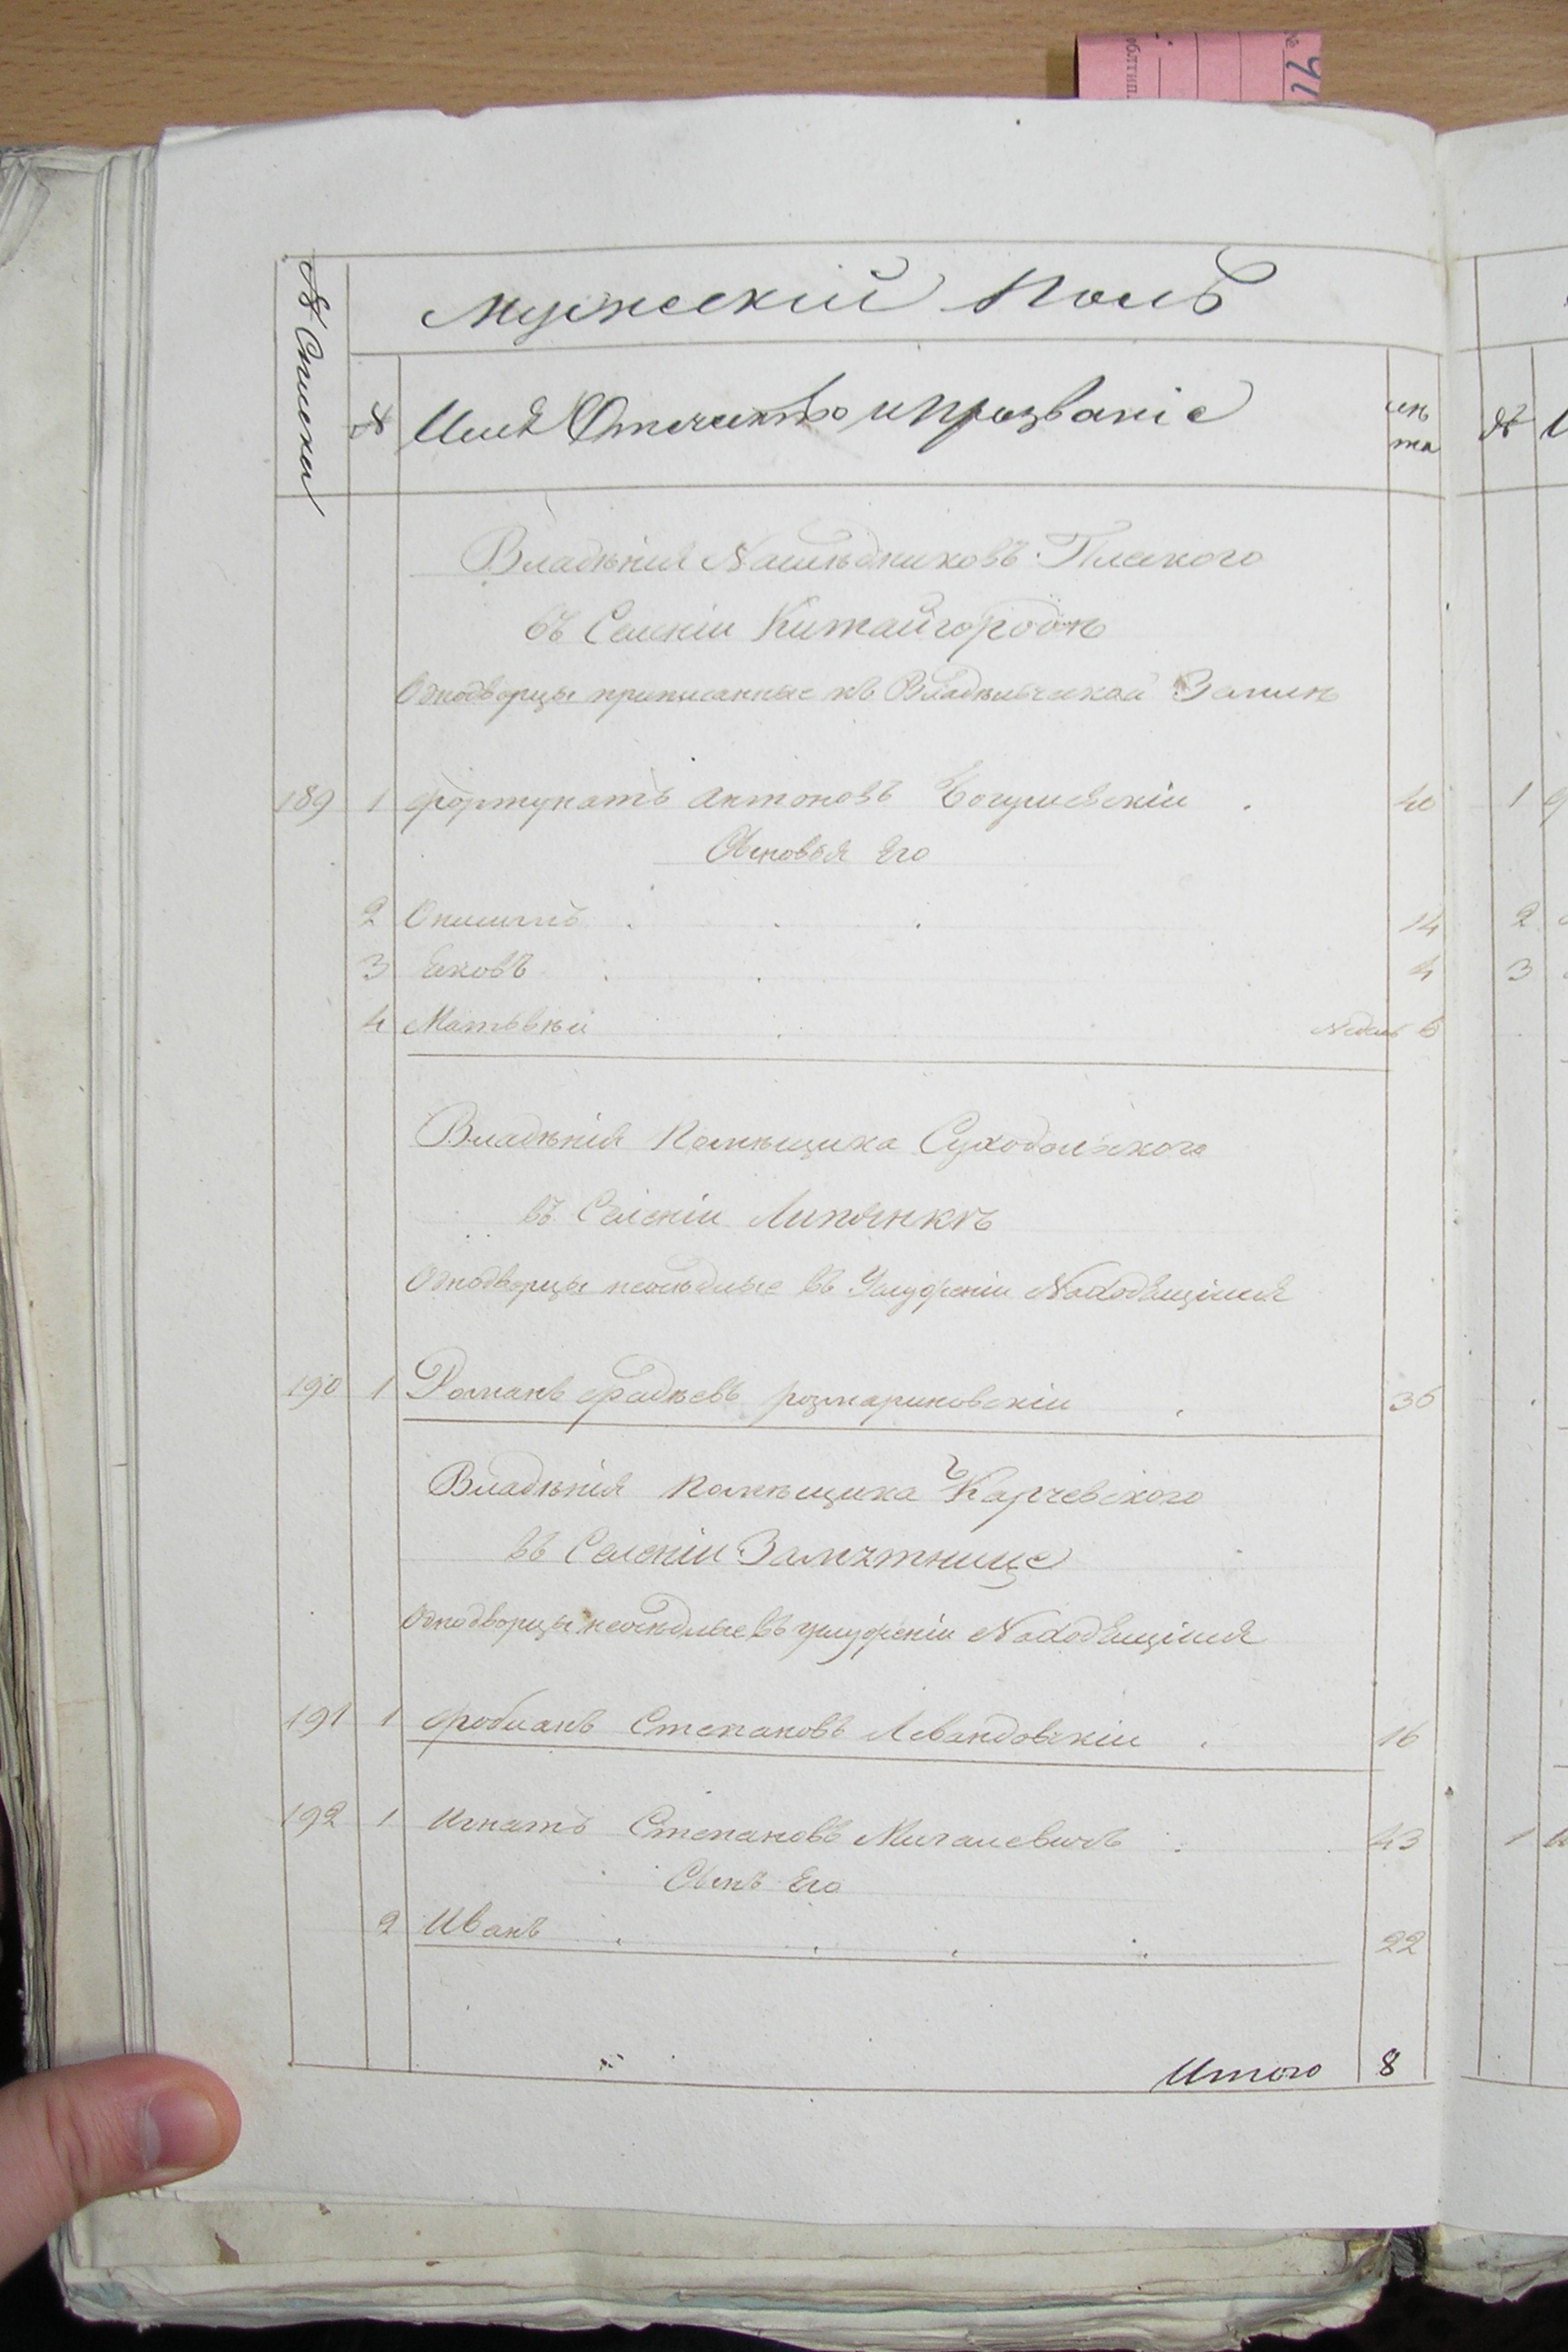 № Списка
Мужескій Полъ
№ Имя Отечество и прозваніе
лѣ
та
Владѣнія Наслѣдниковъ Плскаго
въ Селеніи Китайгородѣ
Однодворцы приписанные къ Владѣльческой Землѣ
189 1 Фортунатъ Антоновъ Богушевскій 40
Сыновья Его
2 14 2
3 Яковъ 4 3
4 Матьвѣй недель 6
Владѣнія Помѣщика Суходольского
въ Селеніи Липянкѣ
Однодворцы неосѣдлые въ Услуженіи Находящіися
190 1 Романъ Фадѣевъ Розмариновскій 36
Владѣнія Помѣщика Карчевского
въ Селеніи
Однодворцы неосѣдлые въ услуженіи Находящіися
191 1 Фабианъ Степановъ Левандовскій 16
192 1 Игнатъ Степановъ Михалевичъ 43 1
Сынъ Его
2 Иванъ 22
Итого 8